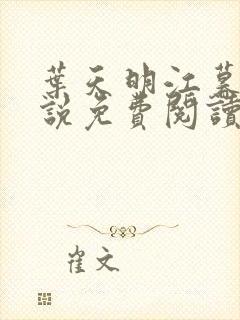 葉天明江暮
說免費閱讀
崔文